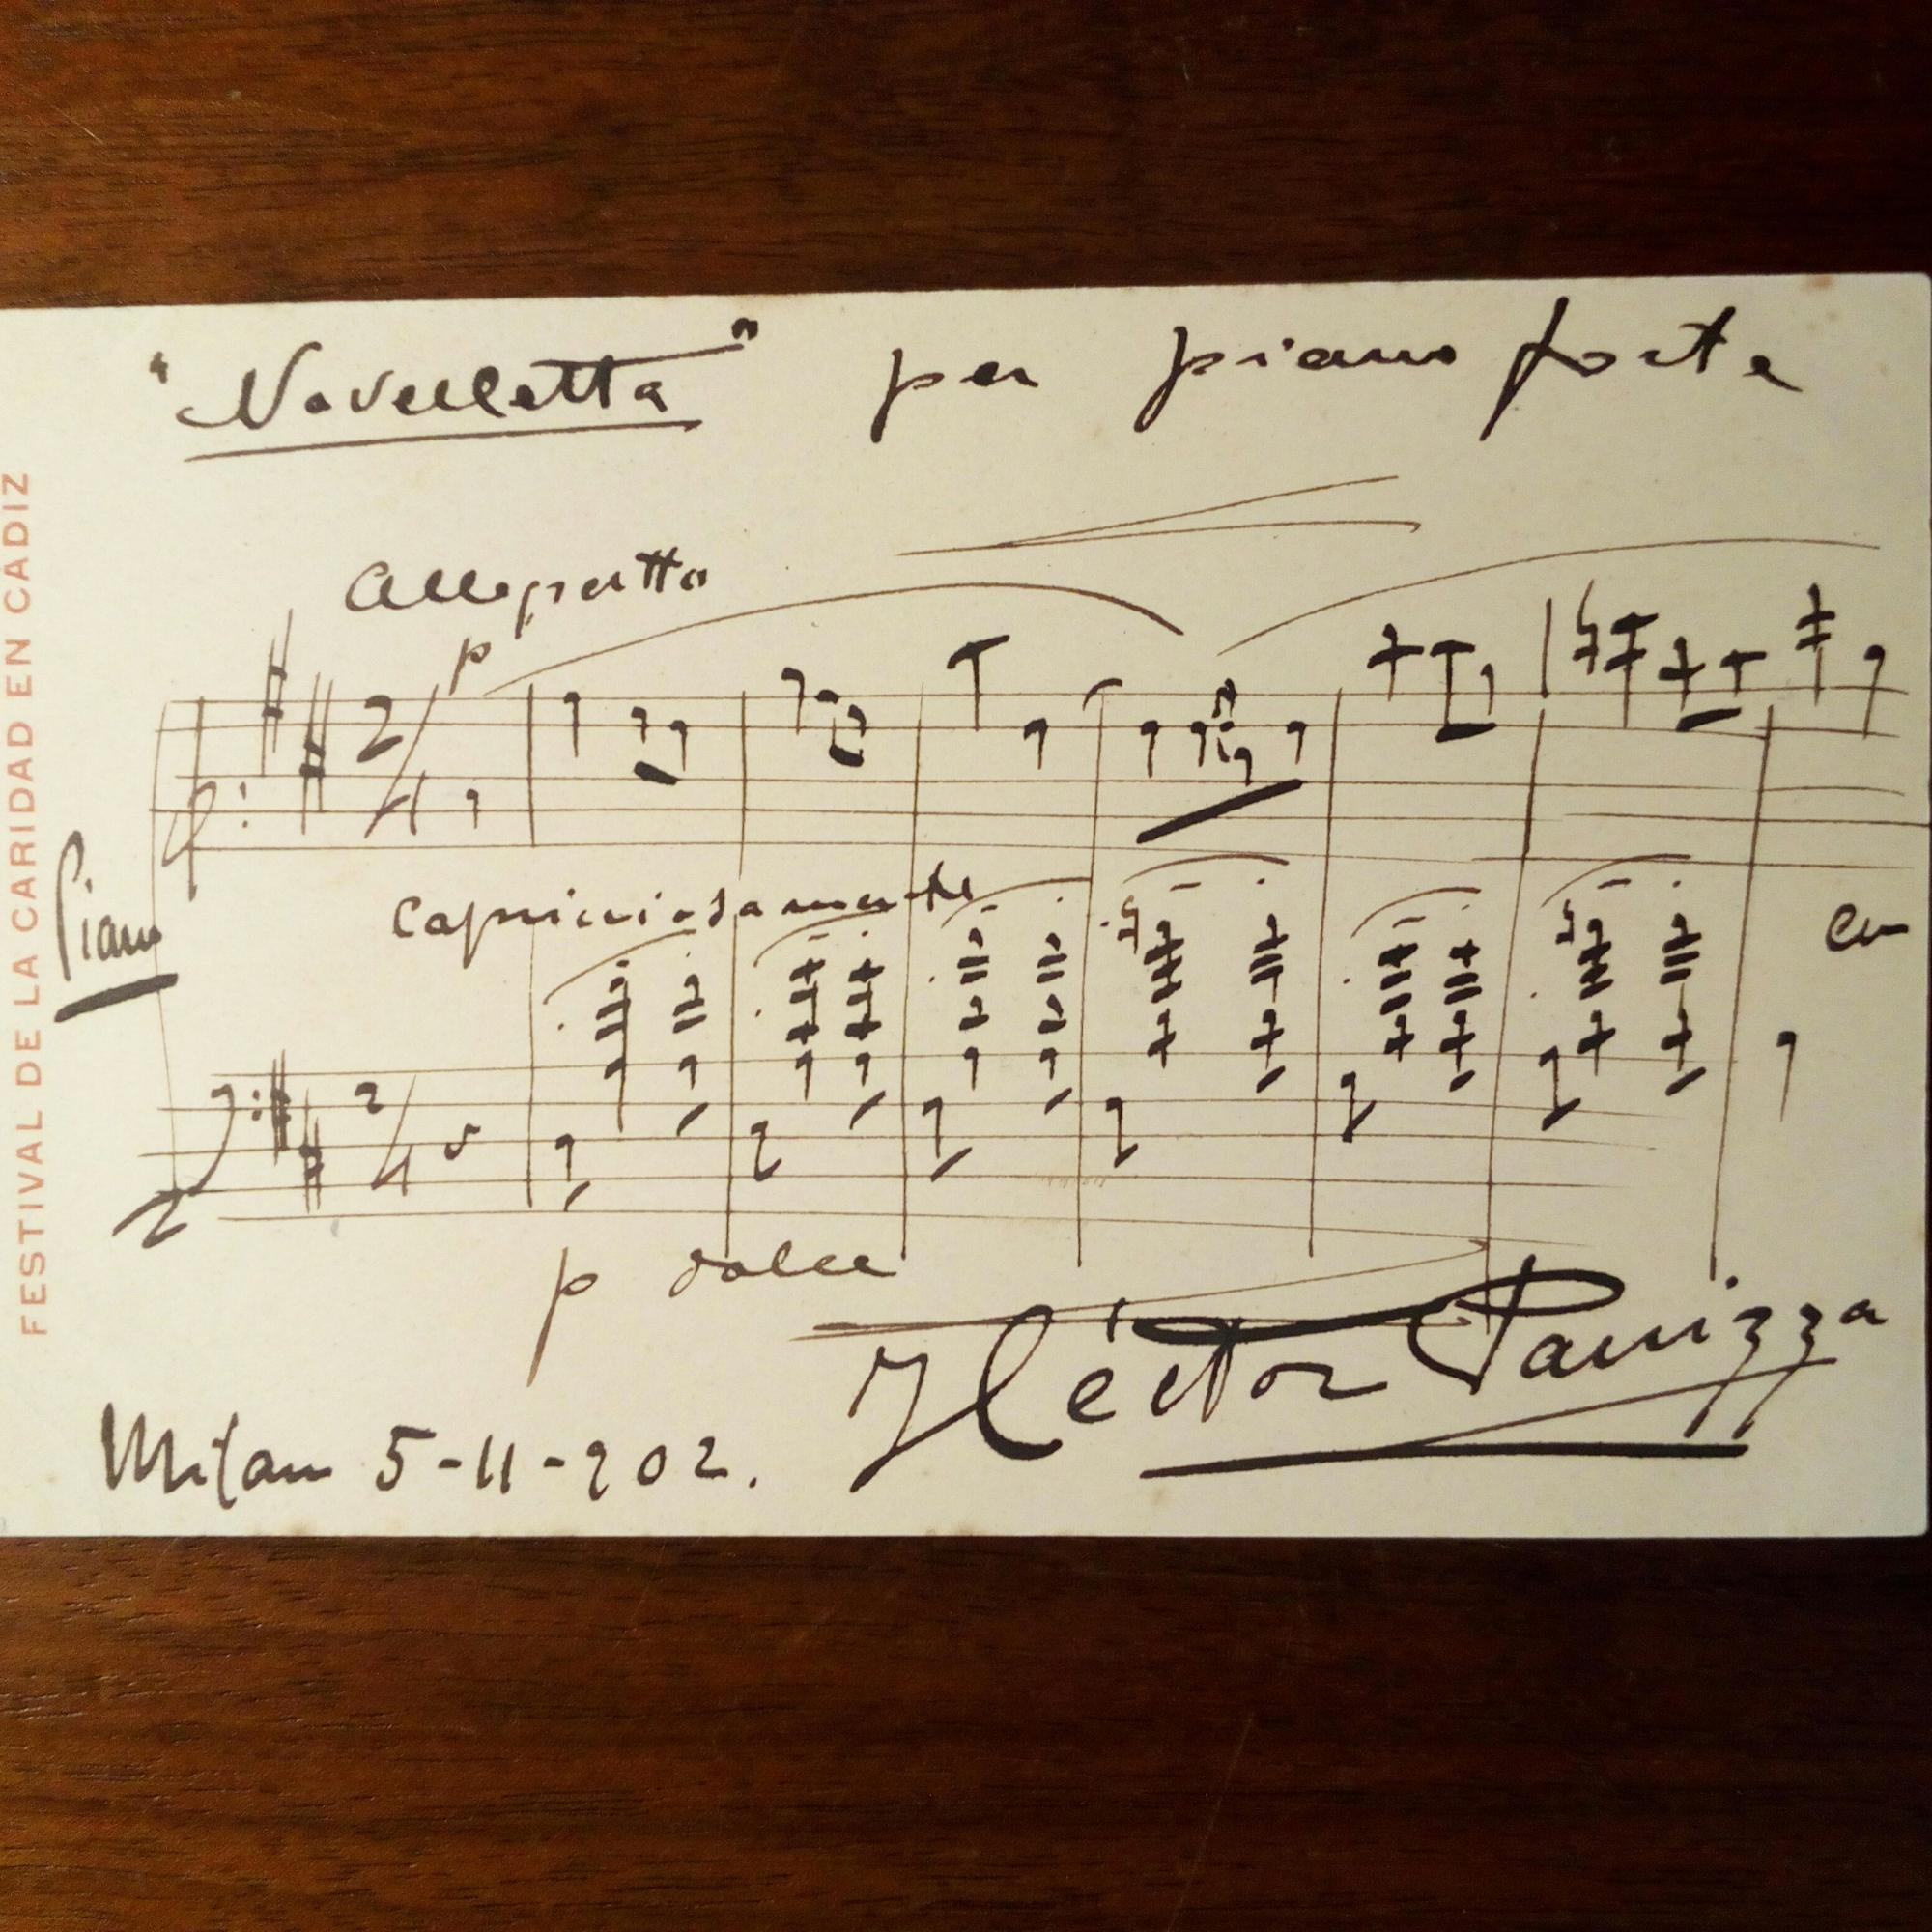 "Novelletta" per piano forte
Allegretto
p
2/4
Capricciosamente
Piano
2/4
p dolce
Héctor Panizza
Milan 5-11-902.
FESTIVAL DE LA CARIDAD EN CADIZ